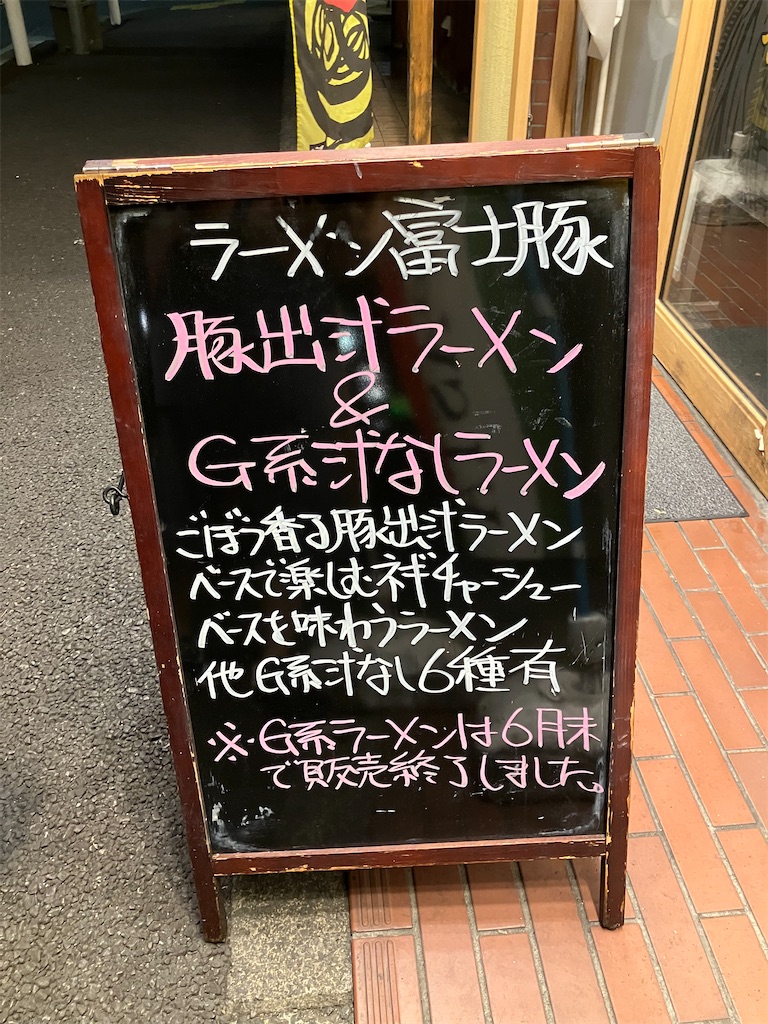 ラーメン富士豚
豚出汁ラーメン
&
G系汁なしラーメン
ごぼう香る豚出汁ラーメン
ベースで楽しむネギチャーシュー
ベースを味わうラーメン
他G系汁なし6種有
※G系ラーメンは6月末
で販売終了しました。